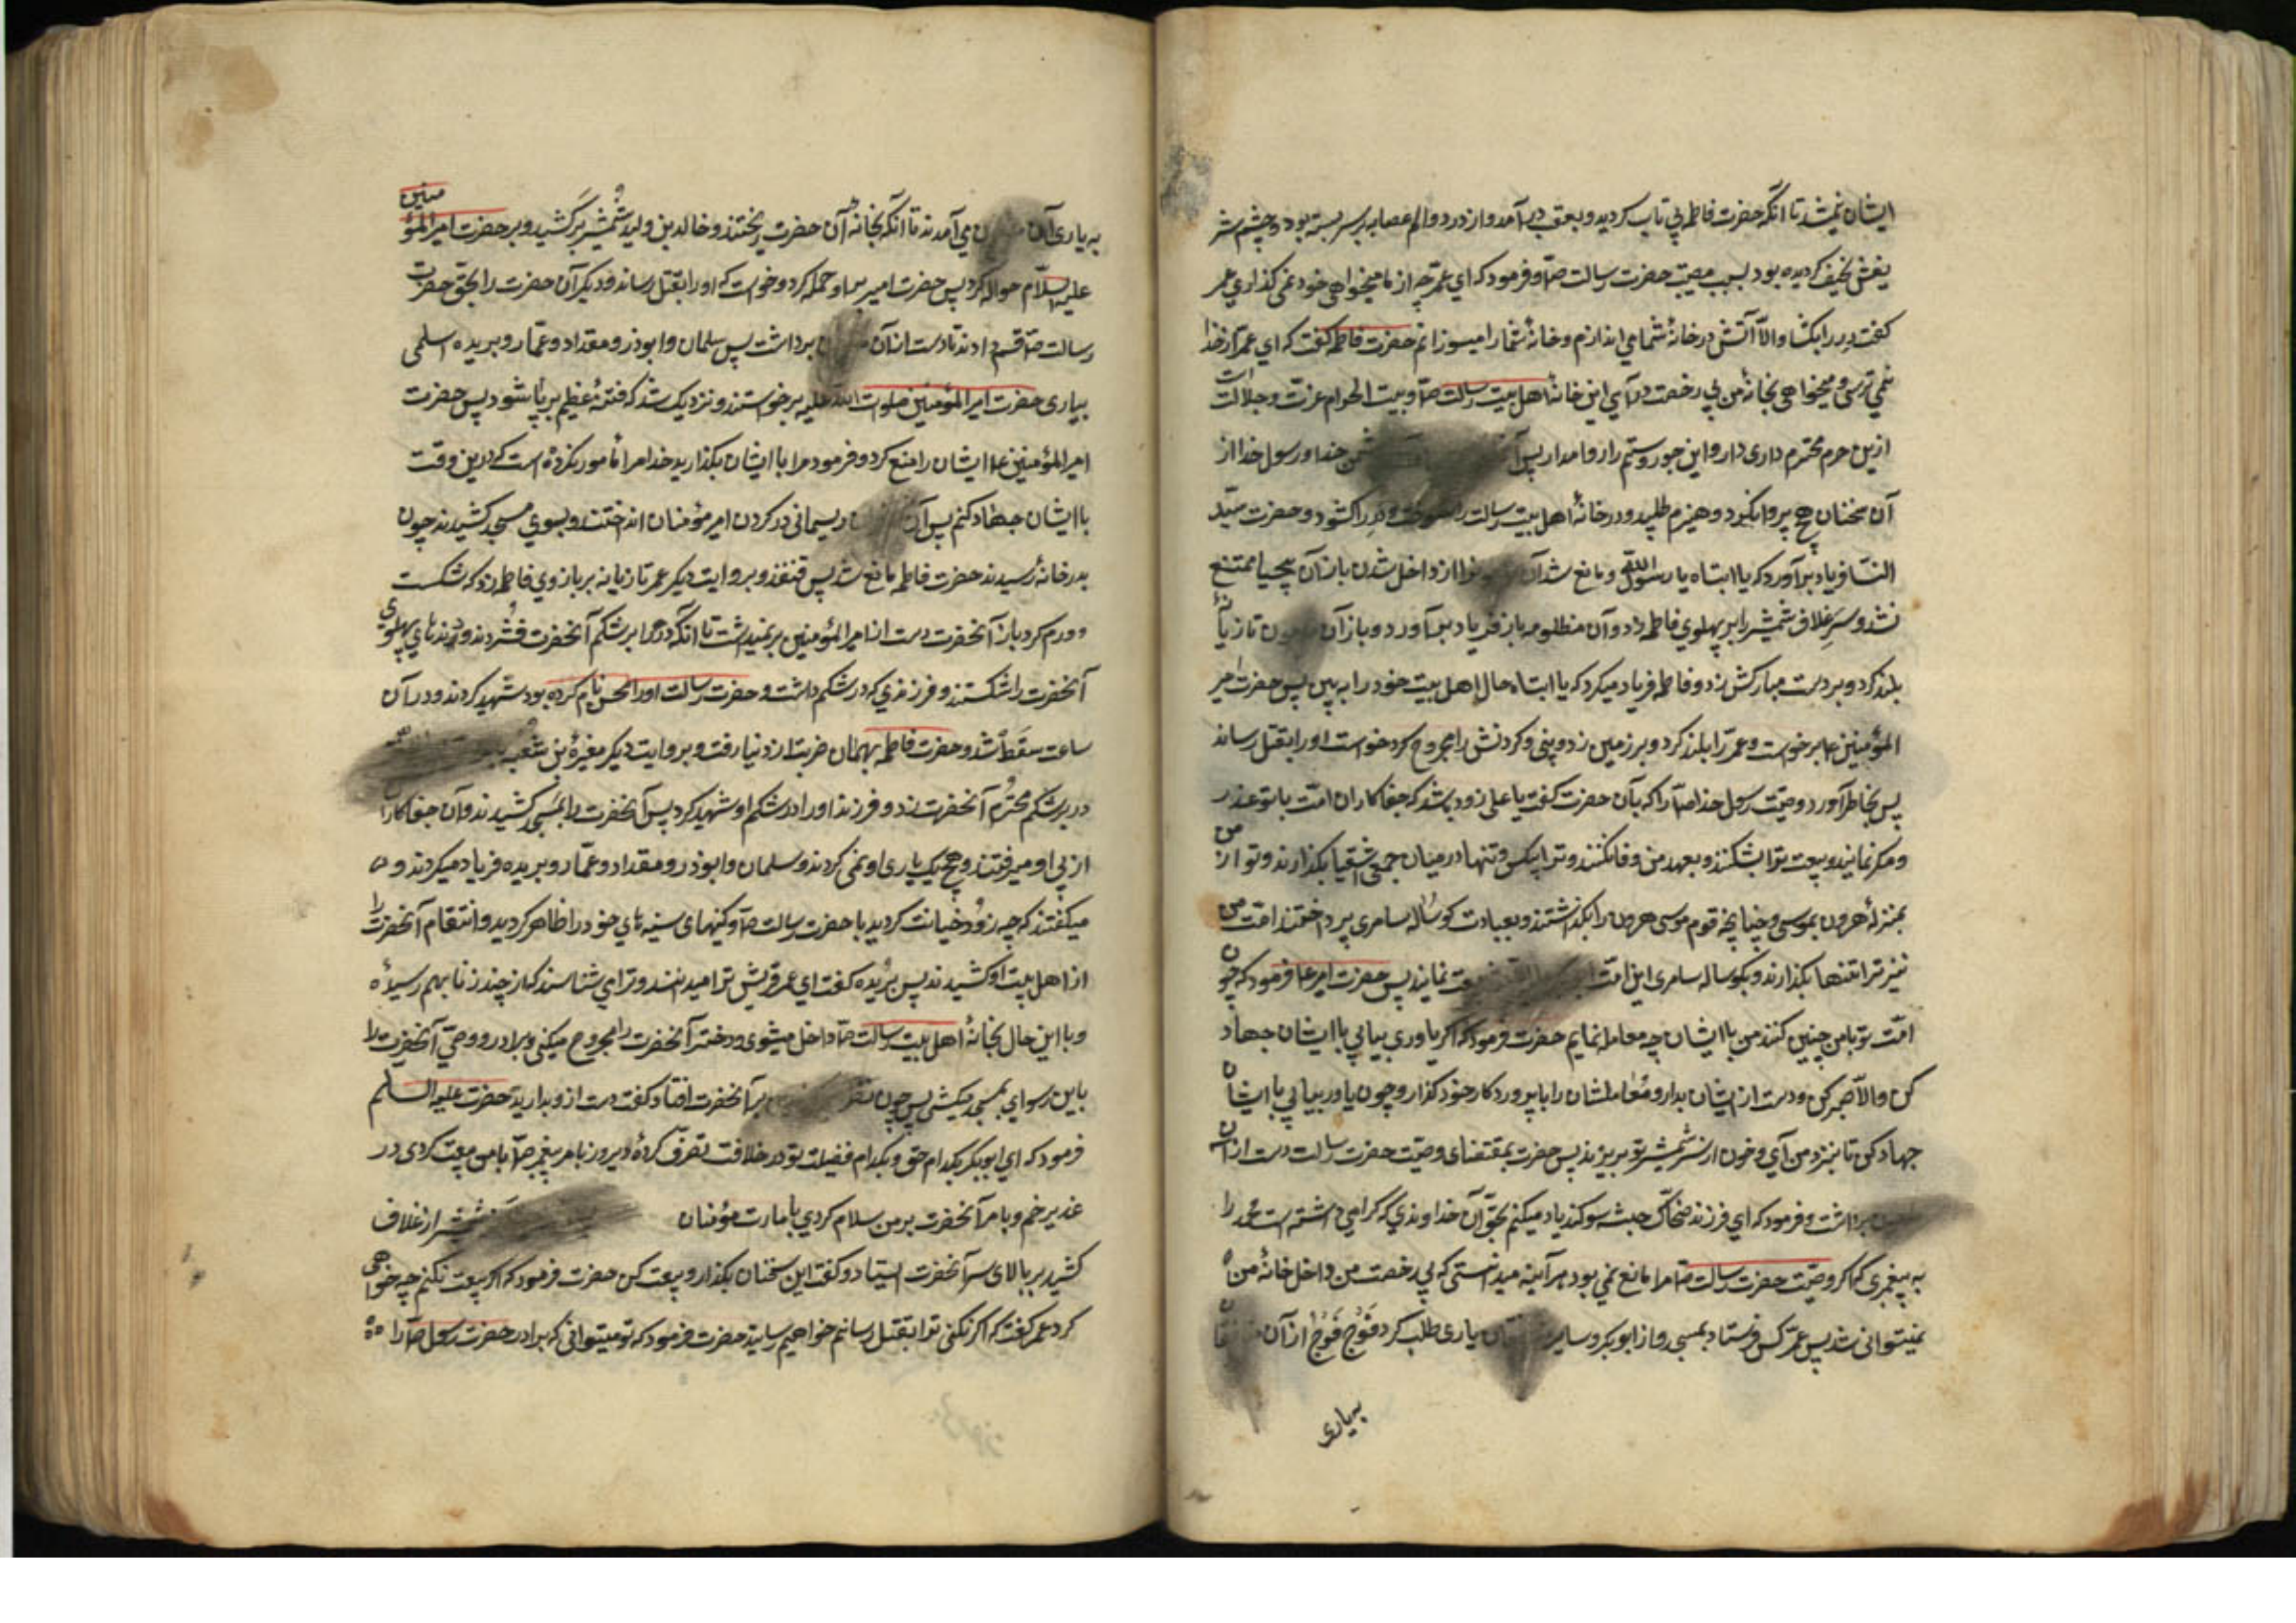 ایشان نمیشد تا انکه حضرت فاطمه بی تاب کردید و بعقب در آمد و از درد و الم عصابه بر سر بسته بود و چشم
نحیف کردیده بود بسبب مصیبت حضرت رسالت صلّ و فرمود که ای عمر چه از ما میخواهی خود نمی کذاری عمر
کفت در را بکشا و الاّ آتش در خانهٔ شما می اندازم و خانهٔ شما را میسوزانم حضرت فاطمه کفت که ای عمر از خدا
نمی ترسی و میخواهی بخانهٔ من بی رخصت در آیی این خانهٔ اهل بیت رسالت صلّ و بیت الحرام عزت و جلالت است
ازین حرم محترم داری دار و این جور و ستم را روا مدار پس خدا و رسول خدا از
آن سخنان هیچ پروا نکرد و هیزم طلبید و در خانهٔ اهل بیت رسالت را سوخت و در را کشود و حضرت سیّد
النسا فریاد بر آورد که یا ابتاه یا رسول الله و مانع شد آن را از داخل شدن باز آن بیحیا ممتنع
نشد و سر غلاف شمشیر را بر پهلوی فاطمه زد و آن مظلومه باز فریاد بر آورد و باز آن تازیانهٔ
بلند کرد و بر دست مبارکش زد و فاطمه فریاد میکرد که یا ابتاه حال اهل بیت خود را به بین پس حضرت امیر
المؤمنین ع برخواست و عمر را بلند کرد و بر زمین زد و بینی و کردنش را مجروح کرد خواست او را بقتل رساند
پس بخاطر آورد وصیّت رسول خدا صلّ را که بآن حضرت کفت یا علی زود باشد که جفاکاران امّت با تو غدر
و مکر نمایند و بیعت ترا بشکنند و بعهد من وفا نکنند و ترا بیکس و تنها در میان جمعی اشقیا بکذارند و تو از من
بمنزلهٔ هرون بموسی و چنانچه قوم موسی هرون را بکذاشتند و بعبادت کوسالهٔ سامری پرداختند امّت من
نیز ترا تنها بکذارند و بکوسالهٔ سامری این امّت بیعت نمایند پس حضرت امیر ع فرمود که چون
امّت تو با من چنین کنند من با ایشان چه معامله نمایم حضرت فرمود که اکر یاوری بیابی با ایشان جهاد
کن و الاّ صبر کن و دست از ایشان بدار و معاملشان را با پروردکار خود کذار و چون یاور بیابی با ایشان
جهاد کن تا بنزد من آیی و خون از شمشیر تو بریزد پس حضرت بمقتضای وصیّت حضرت رسالت دست از ان
برداشت و فرمود که ای فرزند ضحّاک حبشه سوکند یاد میکنم بحقّ آن خداوندی که کرامی داشته است محمد را
به پیغمبری که اکر وصیّت حضرت رسالت صلّ مرا مانع نمی بود هر آینه میدانستی که بی رخصت من داخل خانهٔ من
نمیتوانی شد پس عمر کس فرستاد بمسجد و از ابوبکر و سایر یاری طلب کرد فَوْج فَوْج از آن
به یاری
به یاری آن می آمدند تا انکه بخانهٔ آن حضرت ریختند و خالد بن ولید شمشیر بر کشید و بر حضرت امیر المؤمنین
علیه السلام حواله کرد پس حضرت امیر بر او حمله کرد و خواست که او را بقتل رساند و دیکر آن حضرت را بحق حضرت
رسالت صلّ قسم دادند تا دست از آن برداشت پس سلمان و ابوذر و مقداد و عمّار و بریده اسلمی
بیاری حضرت امیر المؤمنین صلوات الله علیه برخواستند و نزدیک شد که فتنهٔ عظیم بر پا شود پس حضرت
امیر المؤمنین ع ایشان را منع کرد و فرمود مرا با ایشان بکذارید خدا مرا مأمور نکرده است که درین وقت
با ایشان جهاد کنم پس آن ریسمانی در کردن امیر مؤمنان انداختند و بسوی مسجد کشیدند چون
بدر خانه رسیدند حضرت فاطمه مانع شد پس قنفذ و بروایت دیکر عمر تازیانه بر بازوی فاطمه زد که شکست
و ورم کرد باز آنحضرت دست از امیر المؤمنین بر نمیداشت تا انکه در را بر شکم آنحضرت فشردند و دندهای پهلوی
آنحضرت را شکستند و فرزندی که در شکم داشت و حضرت رسالت او را محسن نام کرده بود شهید کردند و در آن
ساعت سقط شد و حضرت فاطمه بهمان ضربت از دنیا رفت و بروایت دیکر مغیرهٔ بن شعبه
در بر شکم محترم آنحضرت زد و فرزند او را در شکم او شهید کرد پس آنحضرت را بمسجد کشیدند و آن جفاکاران
از پی او میرفتند و هیچ یک یاری او نمی کردند و سلمان و ابوذر و مقداد و عمّار و بریده فریاد میکردند و
میکفتند که چه زود خیانت کردید با حضرت رسالت صلّ و کینهای سینهای خود را ظاهر کردید و انتقام آنحضرت را
از اهل بیت او کشیدند پس بریده کفت ای عمر قریش ترا میدانند و ترا می شناسند که از چند زنا بهم رسیدهٔ
و با این حال بخانهٔ اهل بیت رسالت صلّ داخل میشوی و دختر آنحضرت را مجروح میکنی و برادر و وصیّ آنحضرت را
باین رسوایی بمسجد میکشی پس چون نظر بر آنحضرت افتاد کفت دست از و بدارید حضرت علیه السلم
فرمود که ای ابوبکر بکدام حق و بکدام فضیلت تو در خلافت تصرّف کردهٔ دیروز بامر پیغمبر صلّ با من بیعت کردی در
غدیر خم و بامر آنحضرت بر من سلام کردی بامارت مؤمنان شمشیر از غلاف
کشید بر بالای سر آنحضرت استاد و کفت این سخنان بکذار و بیعت کن حضرت فرمود که اکر بیعت نکنم چه خواهی
کرد عمر کفت که اکر نکنی ترا بقتل رسانم خواهیم رسانید حضرت فرمود که تو میتوانی که برادر حضرت رسول صلّ را